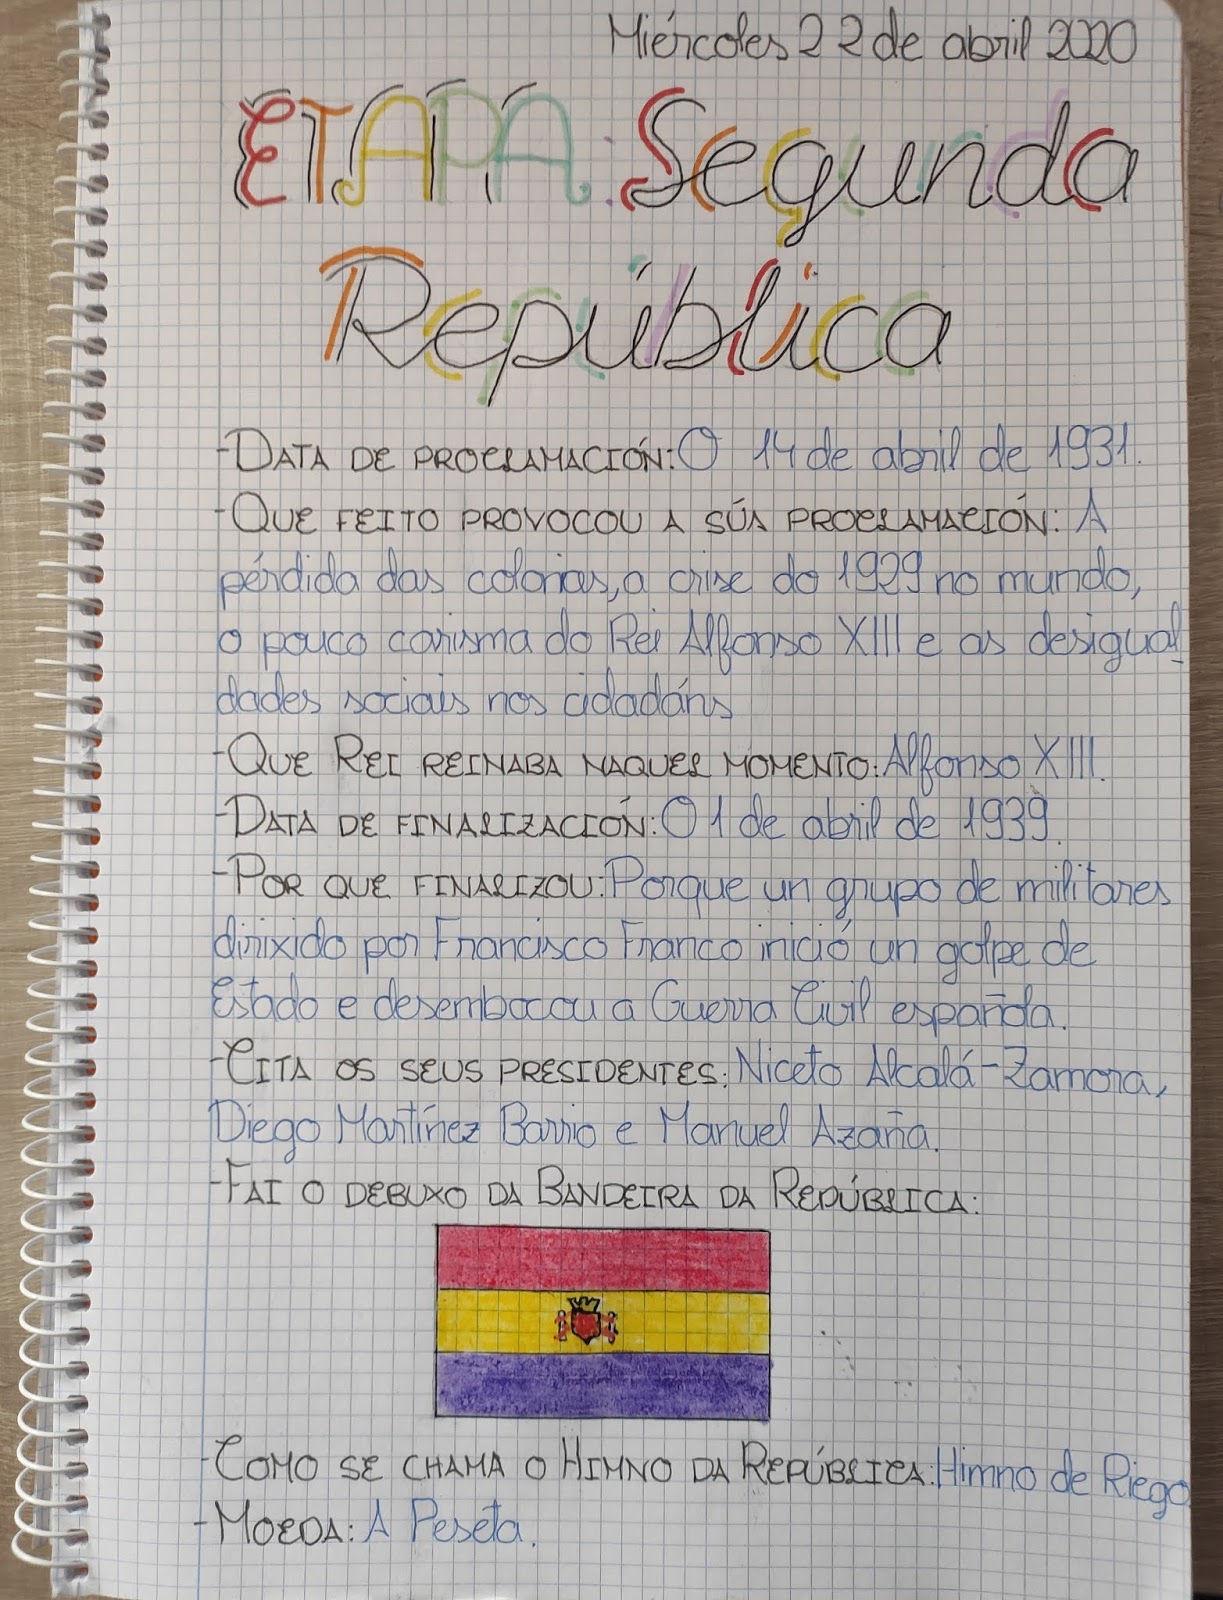 Miércoles 22 de abril 2020
ETAPA: Segunda
República
-DATA DE PROCLAMACIÓN: O 14 de abril de 1931.
-QUE FEITO PROVOCOU A SÚA PROCLAMACIÓN: A
pérdida das colonias, a crise do 1929 no mundo,
o pouco carisma do Rei Alfonso XIII e as desigual-
dades sociais nos cidadáns
-QUE REI REINABA NAQUEL MOMENTO: Alfonso XIII.
-DATA DE FINALIZACIÓN: O 1 de abril de 1939.
-POR QUE FINALIZOU: Porque un grupo de militares
dirixido por Francisco Franco inició un golpe de
Estado e desembocou a Guerra Civil española.
-CITA OS SEUS PRESIDENTES: Niceto Alcalá-Zamora,
Diego Martínez Barrio e Manuel Azaña.
-FAI O DEBUXO DA BANDEIRA DA REPÚBLICA:
-COMO SE CHAMA O HIMNO DA REPÚBLICA: Himno de Riego
-MOEDA: A Peseta.